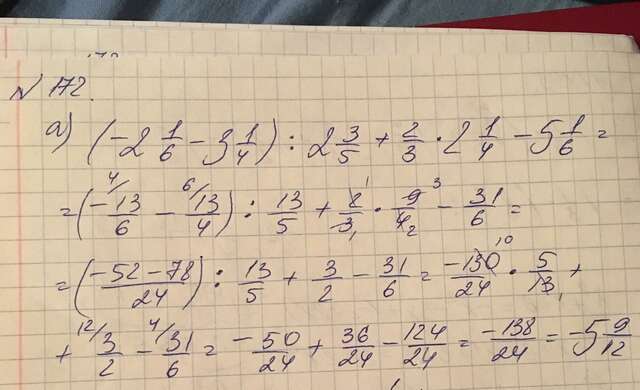 N 172.
а) (-2 1/6 - 3 1/4) : 2 3/5 + 2/3 · 2 1/4 - 5 1/6 =
= (⁴⁄ -13/6 - ⁶⁄ 13/4) : 13/5 + 2/3 ¹ ₁ · 9/4 ³ ₂ - 31/6 =
= (-52-78/24) : 13/5 + 3/2 - 31/6 = -130/24 ¹⁰ · 5/13 ₁ +
+ ¹²⁄ 3/2 - ⁴⁄ 31/6 = -50/24 + 36/24 - 124/24 = -138/24 = -5 9/12